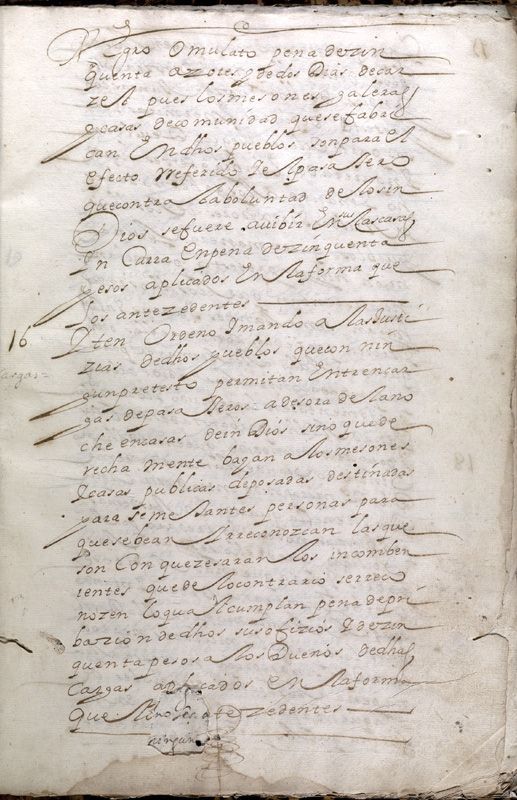 Negro O mulato pena dezin
quenta azotes y de dos Dias decar
zel pues los mesones galeras
y casas decomunidad quese fabri
can En dhos pueblos son para El
efecto Referido y el pasa Xero
quecontra la boluntad de los in
Dios sefuere avibir En sus casas
In Curra En pena dezinquenta
pesos aplicados En la forma que
los antezedentes
16
Yten Ordeno y mando a las Justi
zias dedhos pueblos quecon nin
gun pretesto permitan Entren car
gas depasa Xeros adesora de la no
che encasas dein Dios sino quede
recha mente bagan a los mesones
y casas publicas deposadas destinadas
para seme Jantes personas para
quesebean y rreconozcan las que
son Con que zesaran los incomben
ientes que de lo contrario serreco
nozen lo qual cumplan pena depri
bazion dedhos sus ofizios y dezin
quenta pesos a los Dueños dedhas
Cargas aplicados en la forma
que los antezedentes